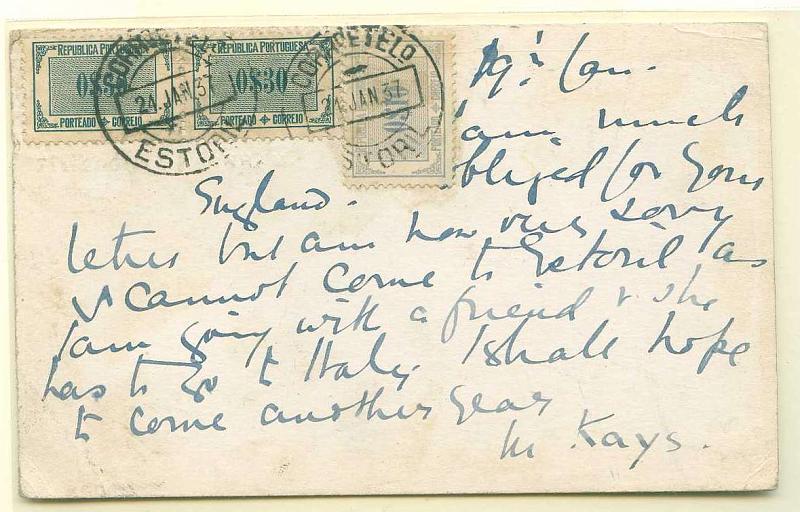 REPÚBLICA PORTUGUESA
0$30
PORTEADO CORREIO
REPÚBLICA PORTUGUESA
0$30
PORTEADO CORREIO
CORREIO E TELO
24.JAN.37
ESTORIL
CORREIO E TELO
JAN 37
ESTORIL
19th Jan.
I am much
England. obliged for your
letter but am now very sorry
I cannot come to Estoril as
I am going with a friend & she
has to go to Italy. I shall hope
to come another year
M Kays.